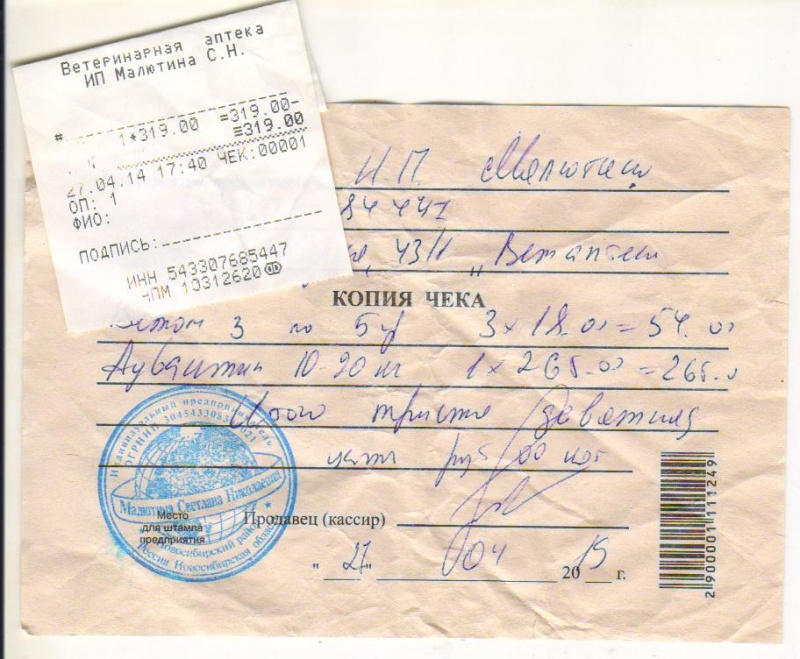 Ветеринарная аптека
ИП Малютина С.Н.
# 1*319.00 =319.00-
≡319.00
27.04.14 17:40 ЧЕК:00001
ОП: 1
ФИО:
ПОДПИСЬ:
ИНН 543307685447
10312620
И.П. Малютина
43/1 „Ветаптека
КОПИЯ ЧЕКА
Ветом 3 по 5 гр 3 x 18.00 = 54.00
Адвантикс 10-20 кг 1 x 265.00 = 265.00
Итого триста
руб 00 коп
Индивидуальный предприниматель
ОГРНИП
Малютина Светлана Николаевна
Новосибирский район
Россия Новосибирская область
Место
для штампа
предприятия
Продавец (кассир)
" 27 " 04 20 15 г.
2 900001 111249